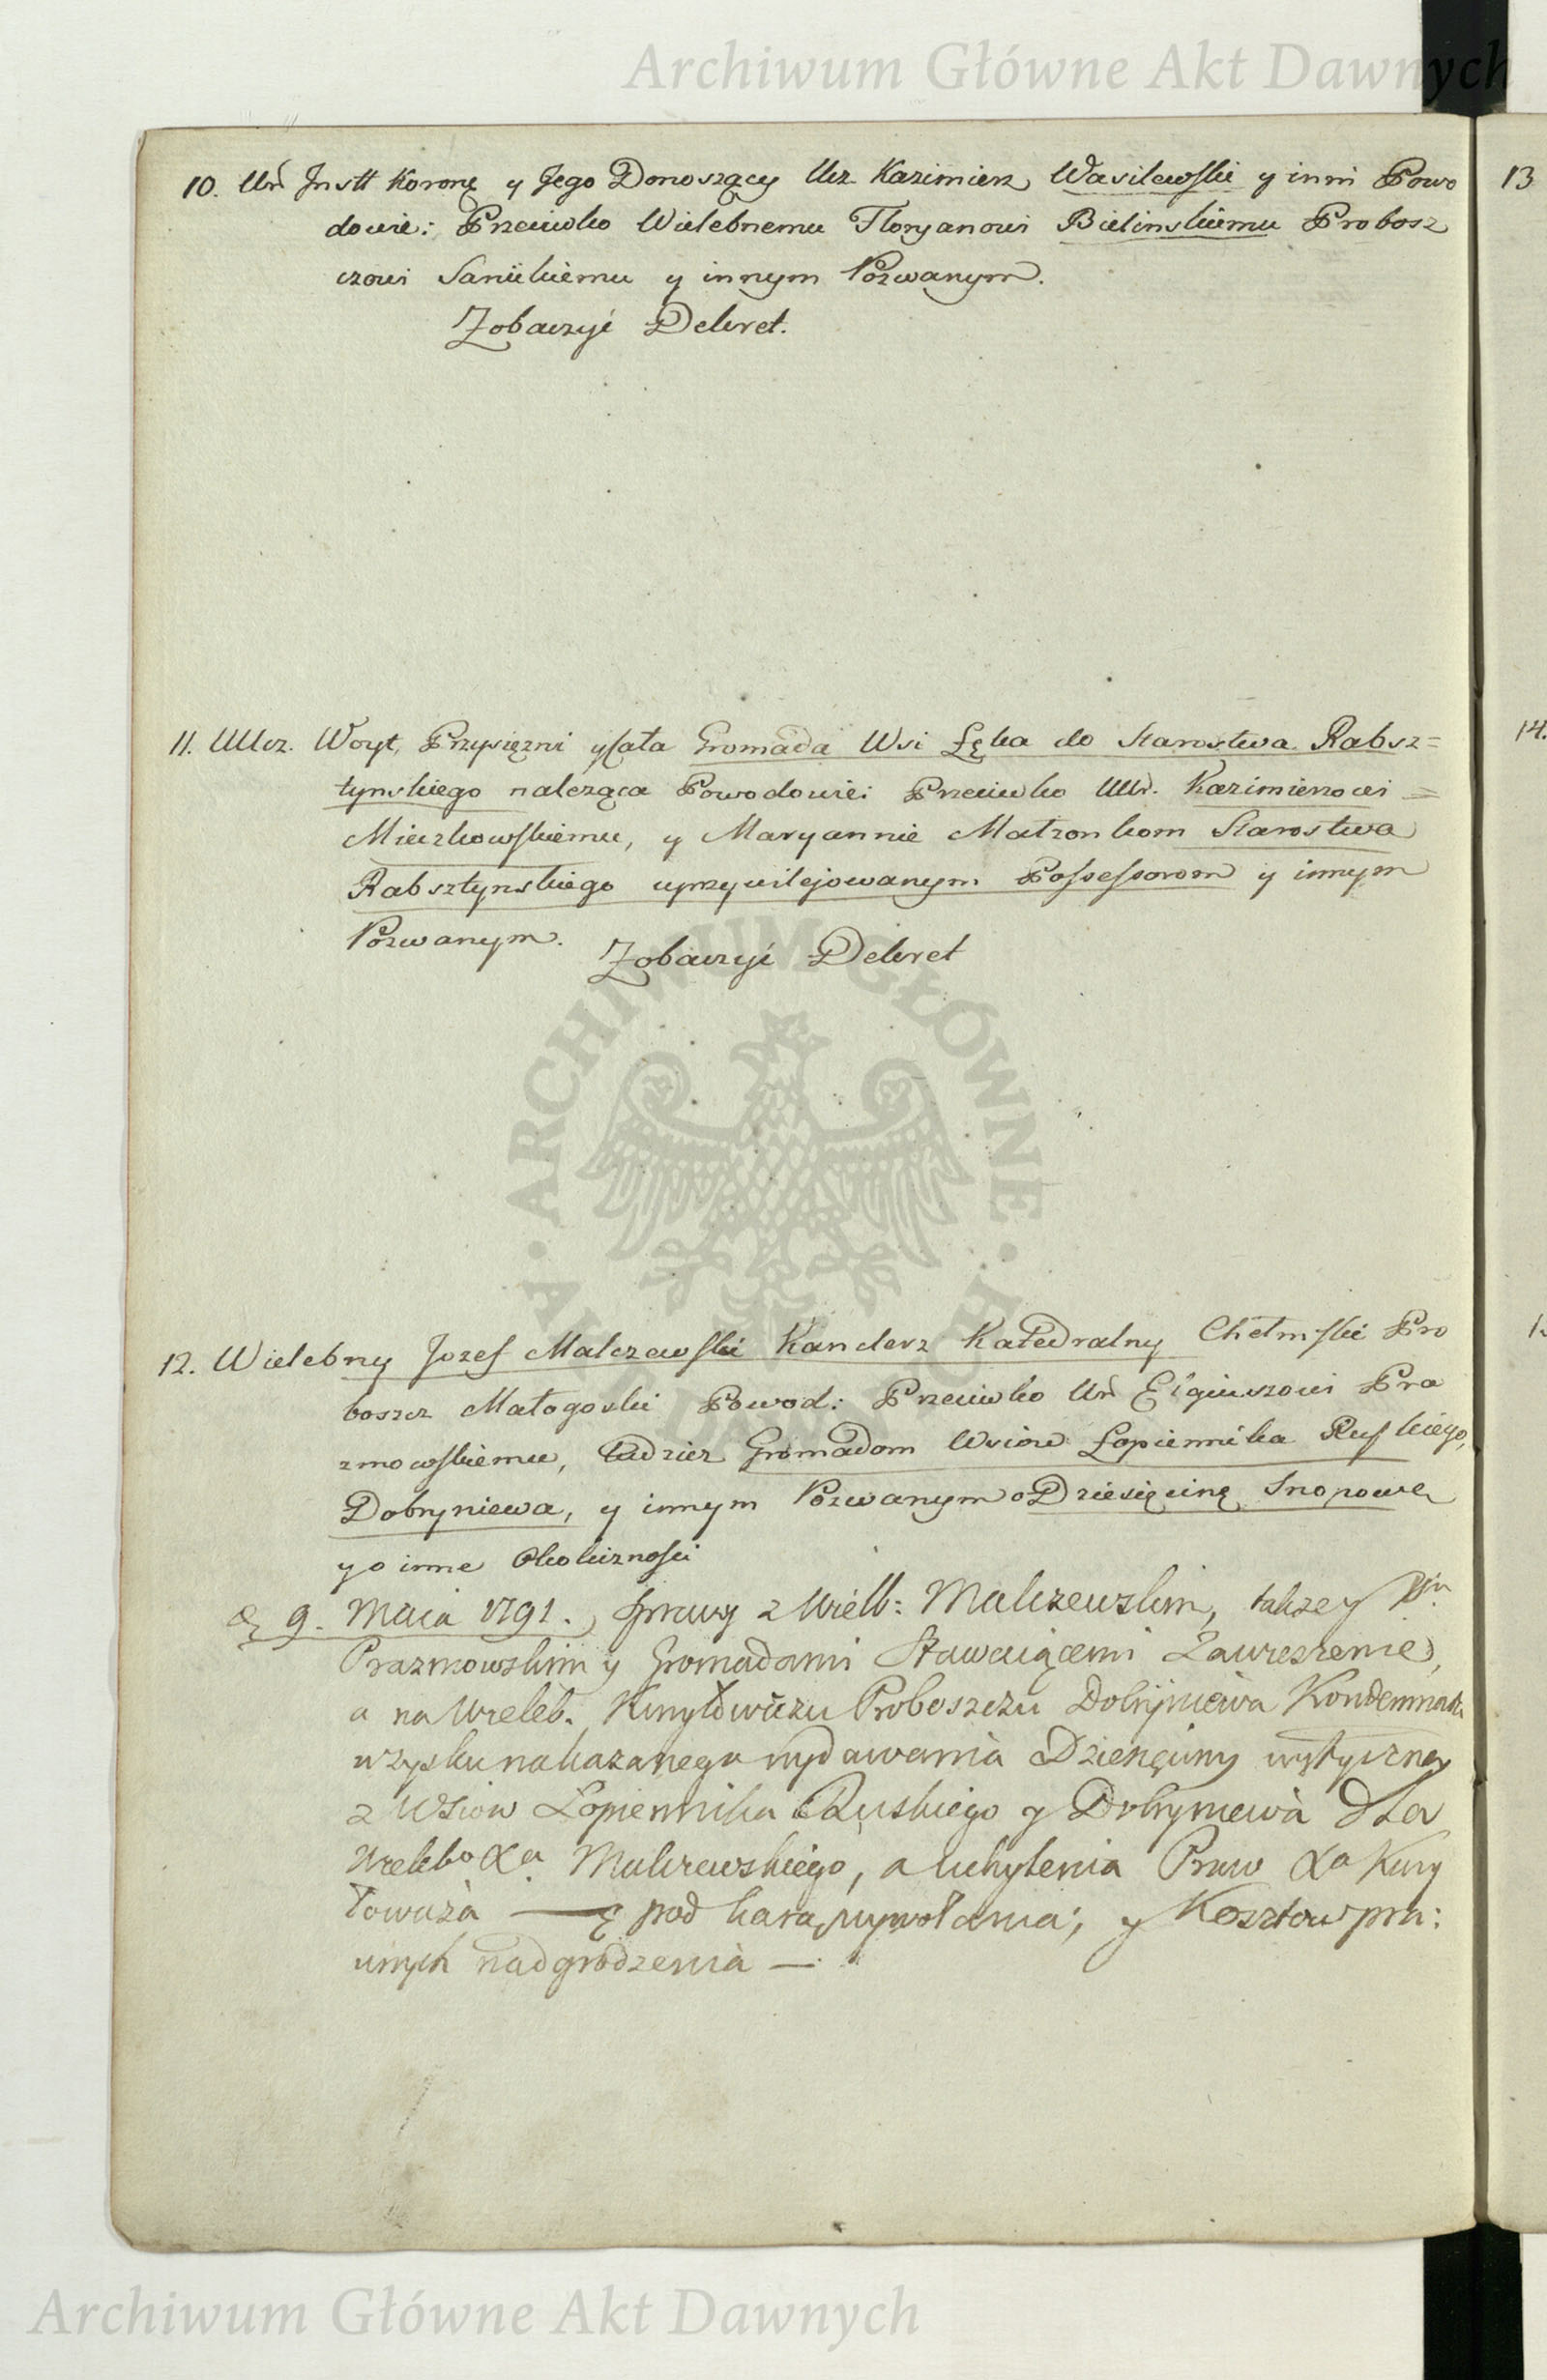 Archiwum Główne Akt Dawnych
10. Ur̃ Instt Koronę y Jego Donoszący Ucz Kazimierz Wasilewski y inni Powo
dowie: Przeciwko Wielebnemu Floryanowi Bielinskiemu Probosz
czowi Sanickiemu y innym Pozwanym.
Zobaczyć Dekret.
13
11. UUcz. Woyt, Przysięzni y cała Gromada Wsi Łęka do Starostwa Rabsz=
tynskiego nalcząca Powodowie: Przeciwko UUr. Kazimierzowi =
Mieczkowskiemu, y Maryannie Małzonkom Starostwa
Rabsztynskiego uprzywilejowanym Possessorom y innym
Pozwanym.
Zobaczyć Dekret
14.
ARCHIWUM GŁÓWNE AKT DAWNYCH
12. Wielebny Jozef Malczewski Kanclerz Katedralny Chełmski Pro
boszcz Małogoski Powod: Przeciwko Ur̃ Eigiuszowi Pra
zmowskiemu, tudziez Gromadom Wsiow Łopiennika Ruskiego,
Dobryniewa, y innym Pozwanym o Dziesięcinę Snopową
y o inne Okoliczności
9. Maia 1791. Sprawy z Wielb: Malczewskim, takze y
Prazmowskim y Gromadami Stawaiącemi Zawieszenie,
a na Wieleb. Kuryłowiczu Proboszczu Dobryniewa Kondemnata
uzysku nakazanego wydawania Dziesięciny wytyczney
z Wsiow Łopiennika Ruskiego y Dobryniewa dla
Wielebo Xa Malczewskiego, a uchylenia Praw Xa Kury
łowicza — pod karą wywołania; y Kosztow praw:
nych nadgrodzenia —
Archiwum Główne Akt Dawnych